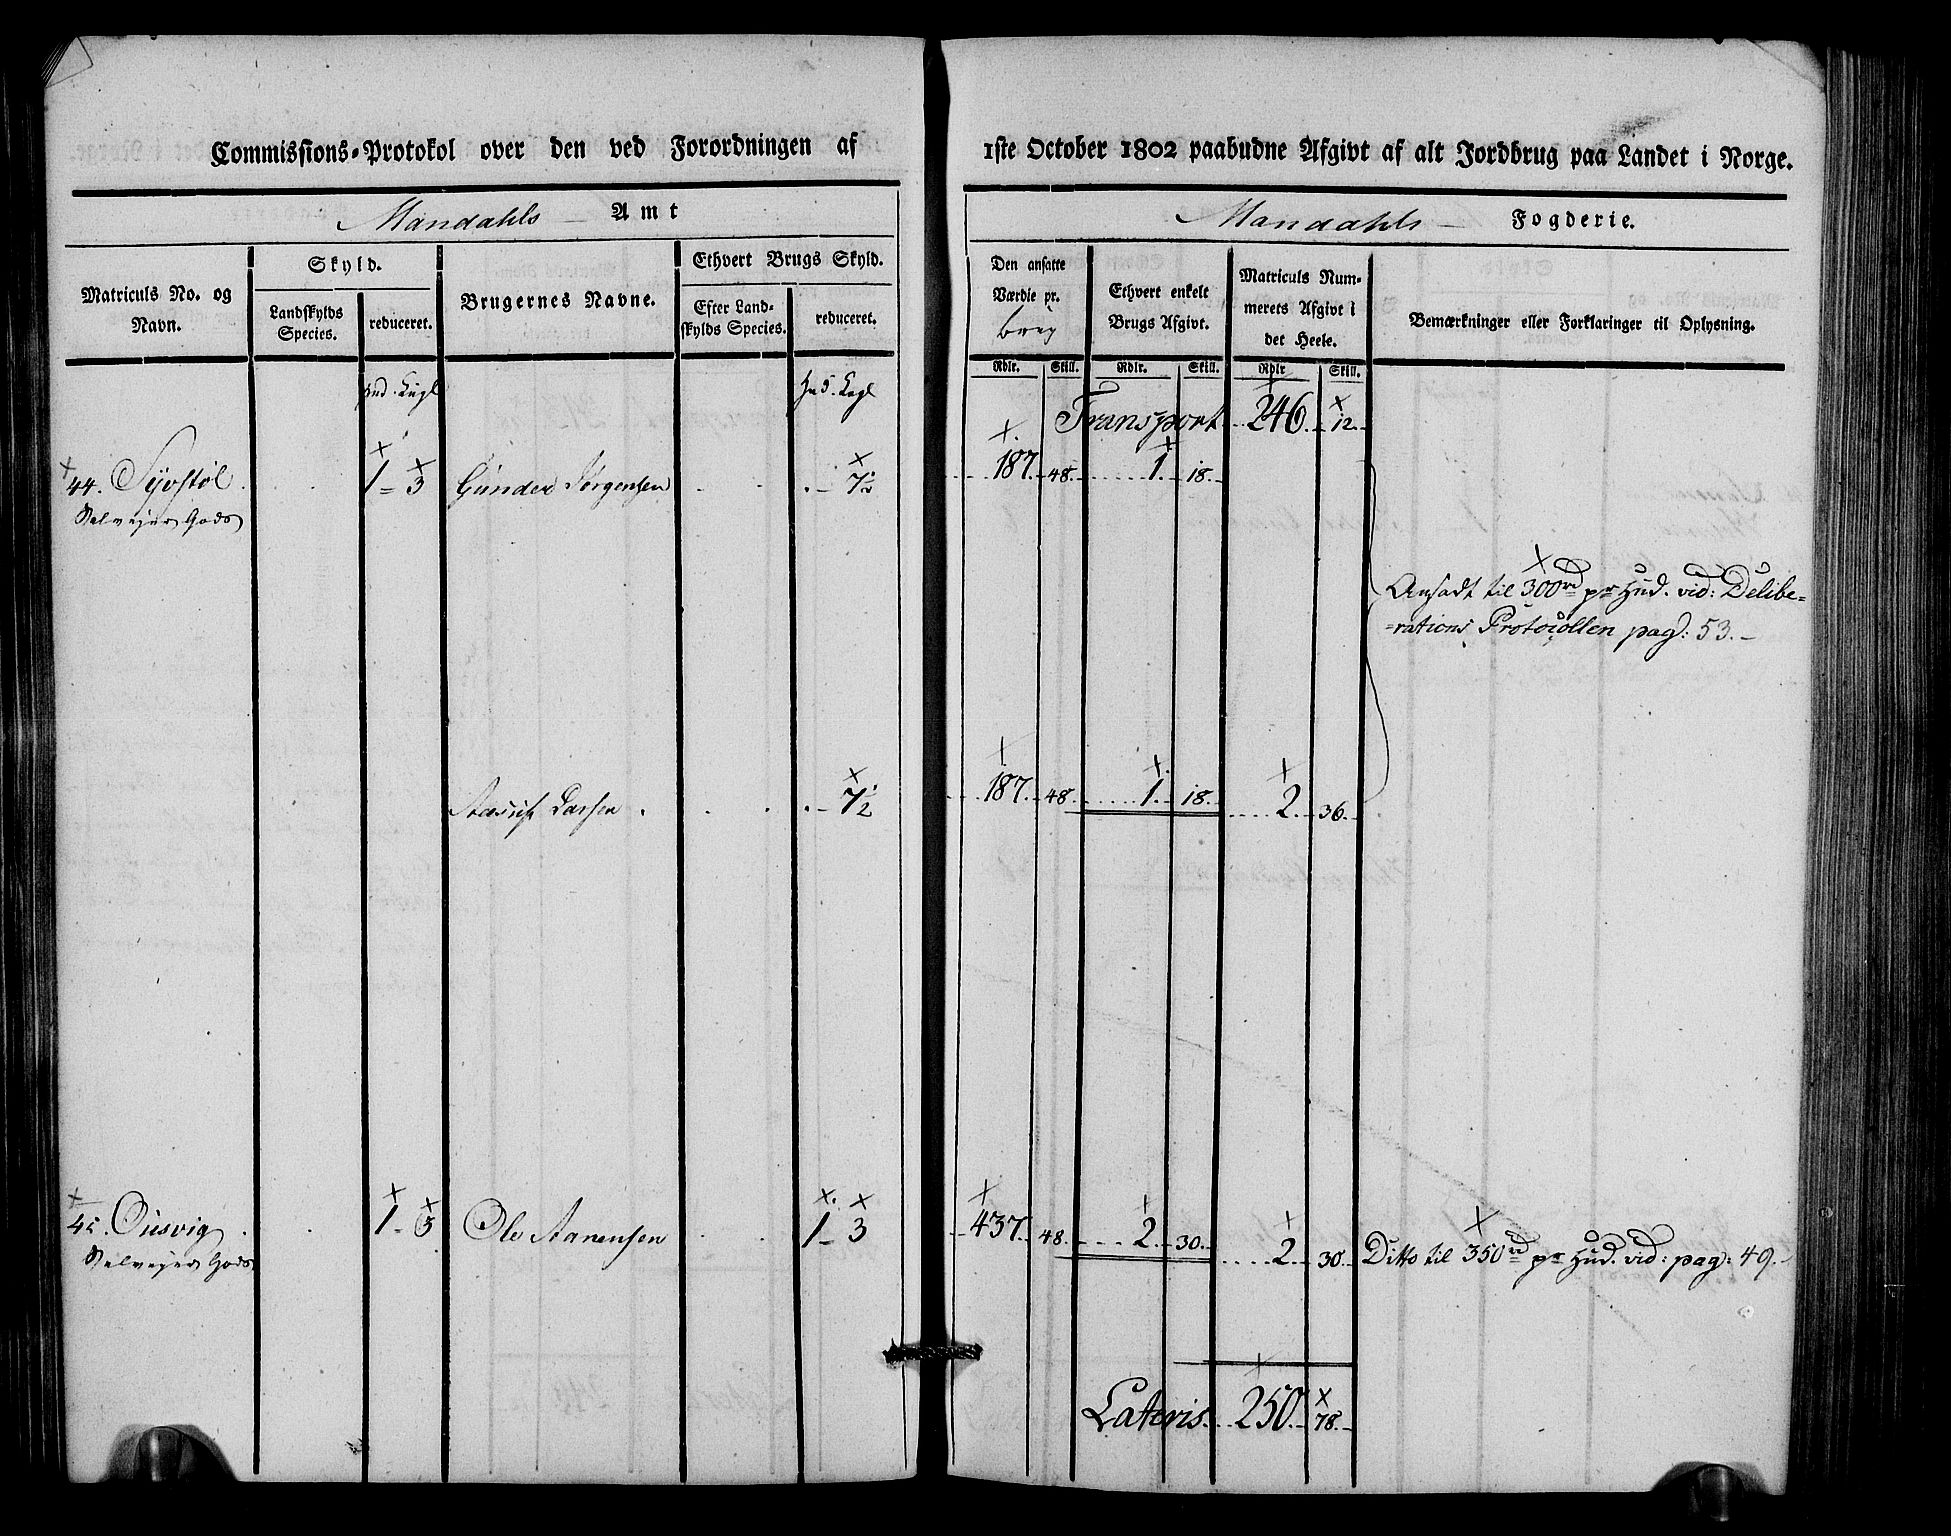 Commissions-Protokol over den ved Forordningen af
1ste October 1802 paabudne Afgivt af alt Jordbrug paa Landet i Norge.
Mandahls Amt
Mandahls Fogderie.
Matriculs No. og Navn.
Skyld.
Landskylds Species.
reduceret.
Brugernes Navne.
Ethvert Brugs Skyld.
Efter Land-
skylds Species.
reduceret.
Den ansatte
Værdie pr.
brug
Ethvert enkelt
Brugs Afgivt.
Matriculs Num-
merets Afgivt i
det Heele.
Bemærkninger eller Forklaringer til Oplysning.
Rdlr. Skill. Rdlr. Skill. Rdlr Skill.
Hud. Kugl
Hud. Kugl
Transport 246. 12.
44. 1 - 3 Gunder Jørgensen - 7½ 187. 48. 1. 18.
Selvejer Gods
Ansadt til 300rd pr Hud. vid: Delibe=
=rations Protocollen pag: 53.
Larsen - 7½ 187. 48. 1. 18. 2. 36.
45. Ousvig 1 - 3 Ole Aanensen 1 - 3 437. 48. 2. 30. 2. 30. Ditto til 350rd pr Hud. vid: pag: 49.
Selvejer Gods
Lateris 250. 78.